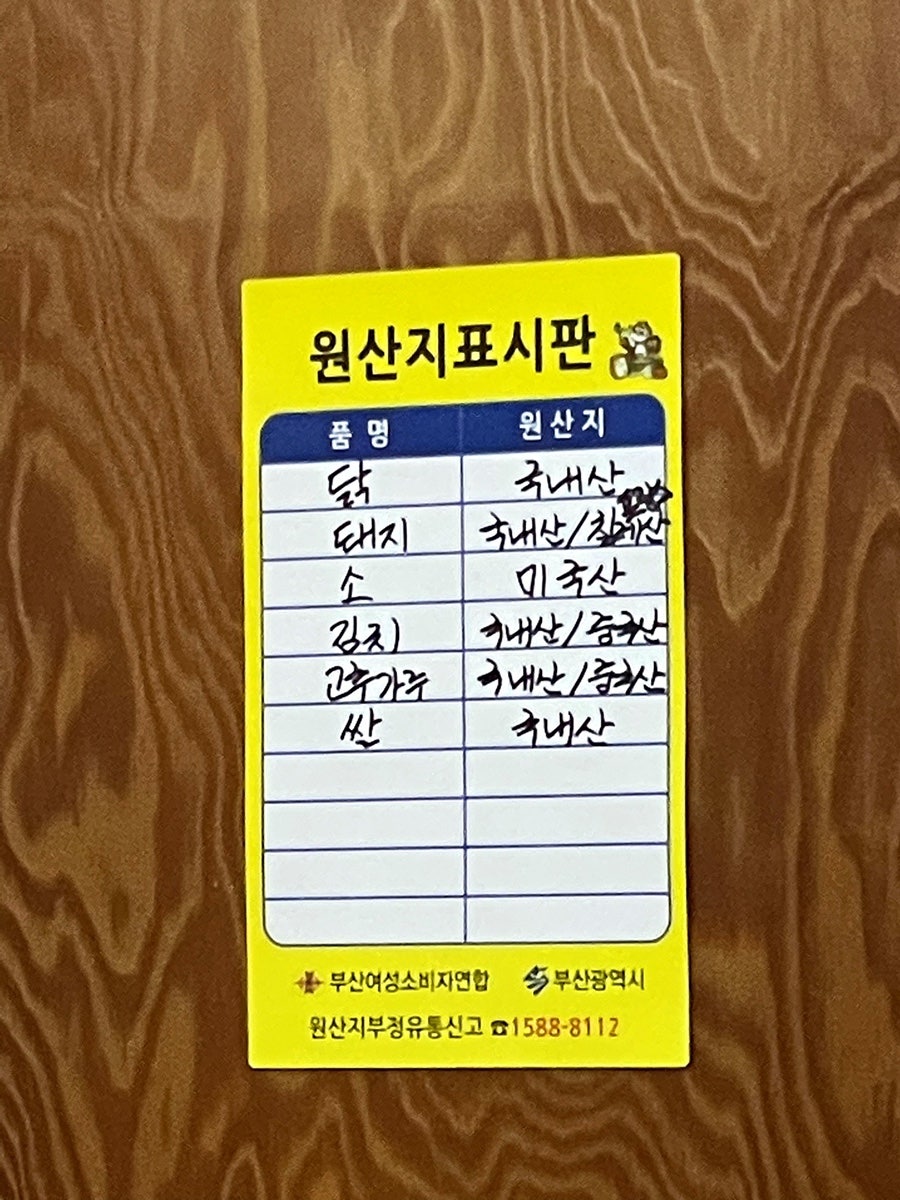 원산지표시판
품명 원산지
닭 국내산
돼지 국내산/
소 미국산
김치 국내산/중국산
고추가루 국내산/중국산
쌀 국내산
부산여성소비자연합 부산광역시
원산지부정유통신고 ☎1588-8112